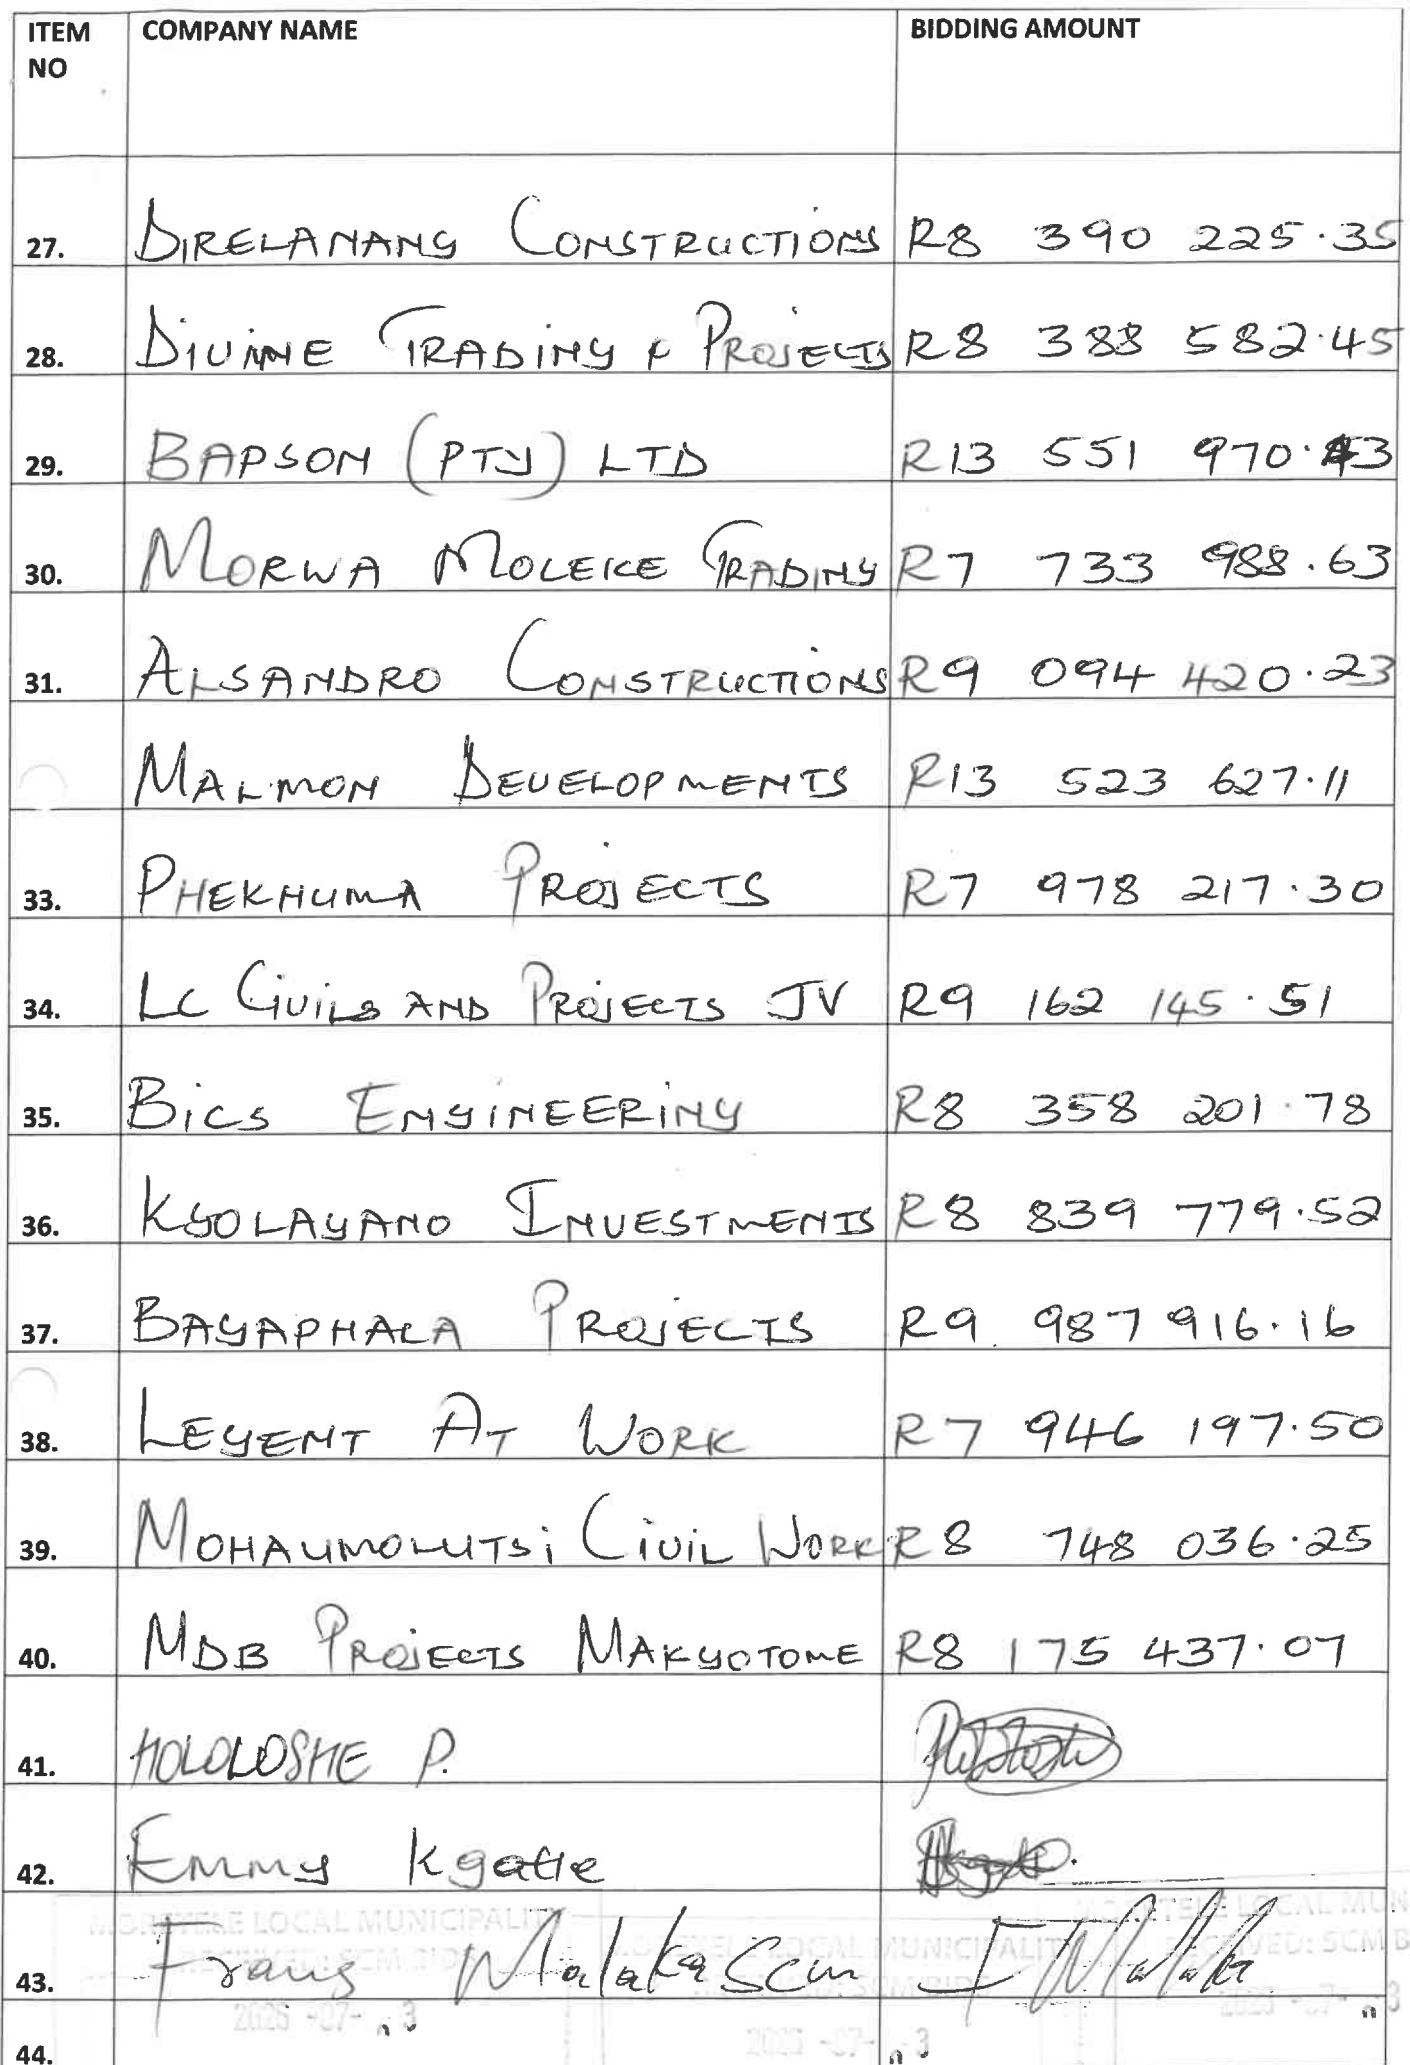 ITEM NO COMPANY NAME BIDDING AMOUNT
27. DIRELANANG CONSTRUCTIONS R8 390 225.35
28. DIVINE TRADING & PROJECTS R8 388 582.45
29. BAPSON (PTY) LTD R13 551 970.43
30. MORWA MOLEKE TRADING R7 733 988.63
31. ALSANDRO CONSTRUCTIONS R9 094 420.23
MALMON DEVELOPMENTS R13 523 627.11
33. PHEKHUMA PROJECTS R7 978 217.30
34. LC CIVILS AND PROJECTS JV R9 162 145.51
35. BICS ENGINEERING R8 358 201.78
36. KGOLAGANO INVESTMENTS R8 839 779.52
37. BAGAPHALA PROJECTS R9 987 916.16
38. LEGENT AT WORK R7 946 197.50
39. MOHAUMOLUTSI CIVIL WORK R8 748 036.25
40. MDB PROJECTS MAKGOTOME R8 175 437.07
41. HOLOLOSHE P.
42. Emmy Kgatle
43. Frans Malaka SCM F Malaka
MORETELE LOCAL MUNICIPALITY
MORETELE LOCAL MUNICIPALITY
MORETELE LOCAL MUN
RECEIVED: SCM B
44.